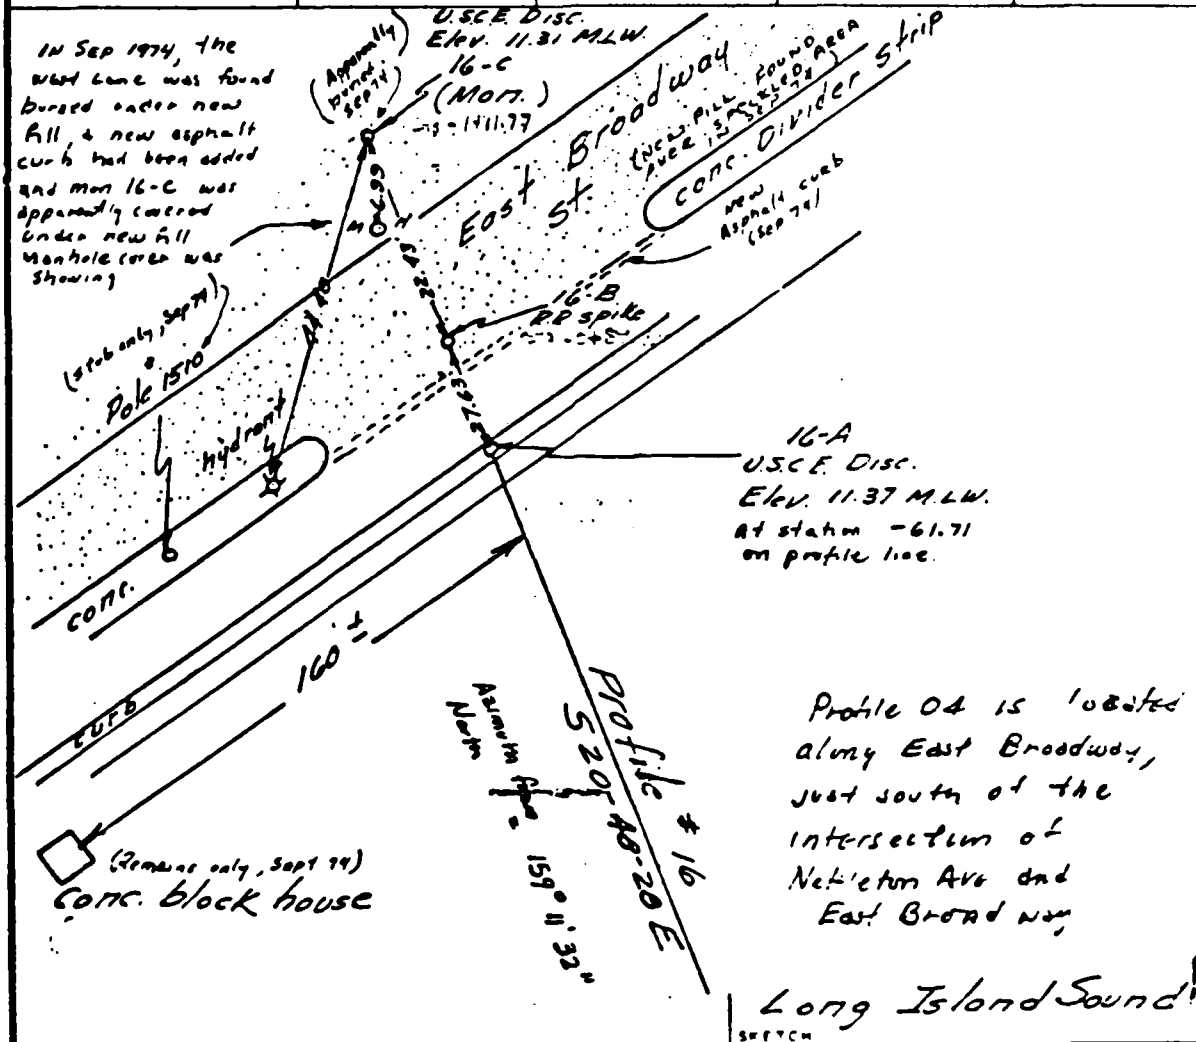 IN Sep 1974, the
west lane was found
buried under new
fill, & new asphalt
curb had been added
and mon 16-C was
apparently covered
under new fill
Manhole cover was
showing
(Apparently
buried
SEP 74)
U.S.C.E. DISC.
Elev. 11.31 M.L.W.
16-C
(Mon.)
East Broadway
St.
(NEW FILL FOUND
OVER SPECKLED AREA
IN SEP 74)
conc. Divider strip
New
Asphalt curb
(Sep 74)
6.99
M H
22
44.40
16-B
R.R spike
37.63
(stub only, Sep 74)
Pole 1510
hydrant
16-A
U.S.C.E. DISC.
Elev. 11.37 M.L.W.
At station -61.71
on profile line.
conc.
160' ±
curb
Profile # 16
S 20-48-20 E
Azimuth from
North = 159° 11' 32"
(Remains only, Sept 74)
Conc. block house
Profile 04 is located
along East Broadway,
just south of the
intersection of
Nettleton Ave and
East Broadway
Long Island Sound
SKETCH